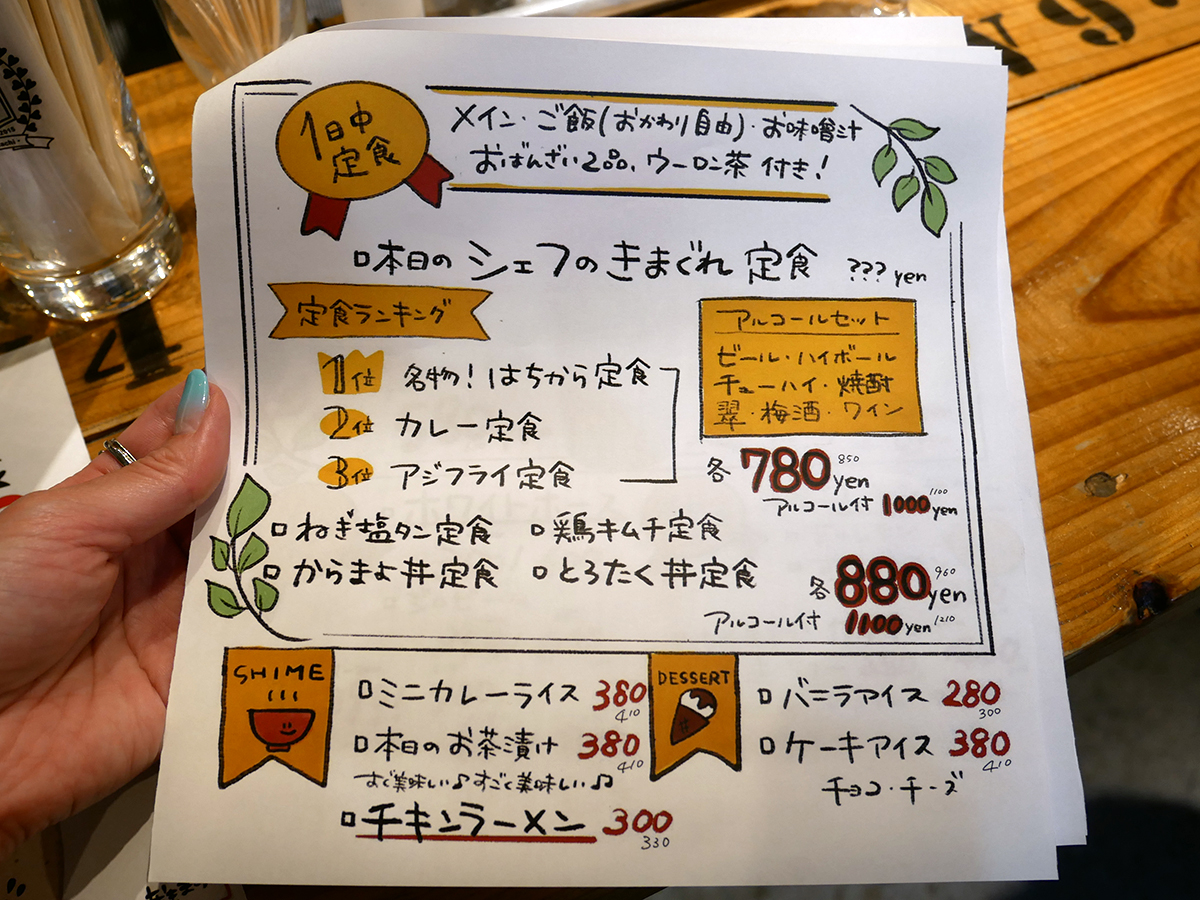 1日中
定食
メイン・ご飯(おかわり自由)・お味噌汁
おばんざい2品、ウーロン茶付き!
本日のシェフのきまぐれ定食 ???yen
定食ランキング
1位 名物!はちから定食
2位 カレー定食
3位 アジフライ定食
アルコールセット
ビール・ハイボール
チューハイ・焼酎
翠・梅酒・ワイン
各780yen 850
アルコール付 1000yen 1100
ねぎ塩タン定食 鶏キムチ定食
からまよ丼定食 とろたく丼定食
各880yen 960
アルコール付 1100yen 1210
SHIME
ミニカレーライス 380
410
本日のお茶漬け 380
410
すごく美味しい♪
チキンラーメン 300
330
DESSERT
バニラアイス 280
300
ケーキアイス 380
410
チョコ・チーズ
2015